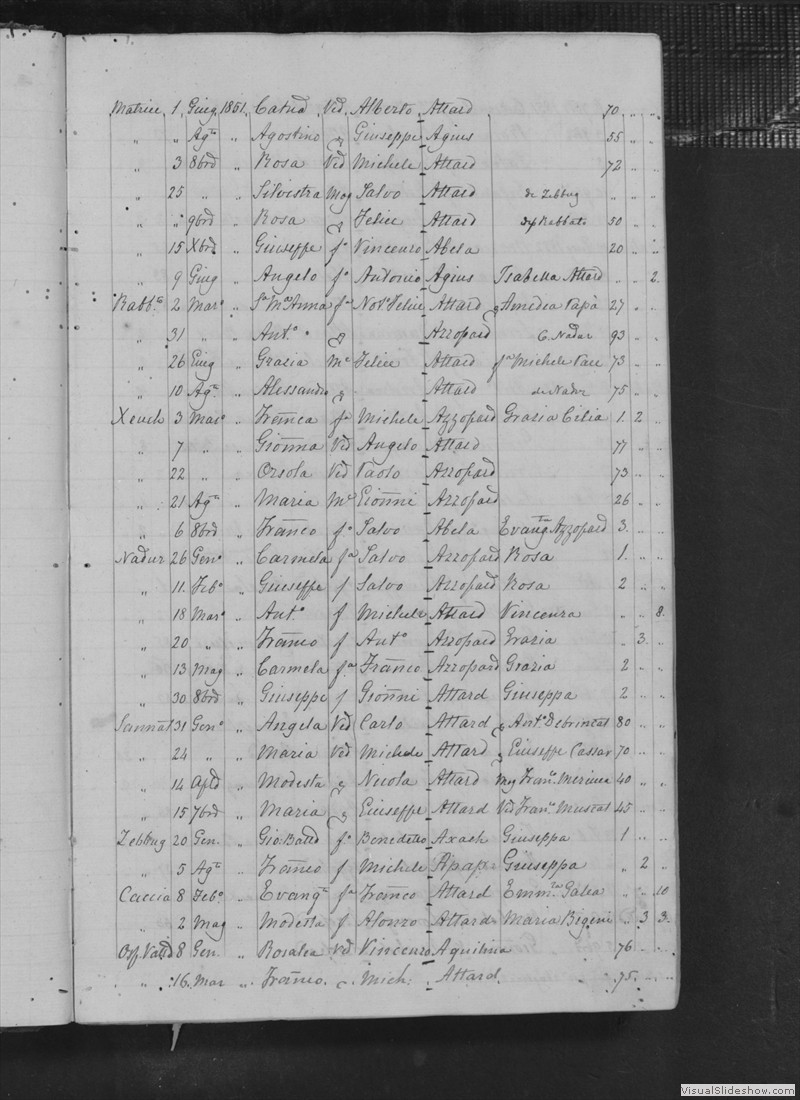 Matrice 1 Giug 1861 Catnd Ved Alberto Attard 70 " "
" " Agto " Agostino Giuseppe Agius 55 " "
" 3 8bre " Rosa Ved Michele Attard 72 " "
" 25 " " Silvestra Mog Salvo Attard de Zebbug " " "
" " 9bre " Rosa Felice Attard Rabbato 50 " "
" 15 Xbre " Giuseppe fo Vincenzo Abela 20 " "
" 9 Giug " Angelo fo Antonio Agius Isabella Attard " " 2.
Rabbto 2 Maro " Sra Ma Anna fa Notr Felice Attard Amedea Papà 27 " "
" 31 " " Anto Azzopard C. Nadur 93 " "
" 26 Giug " Grazia Me Felice Attard fa Michele Pace 73 " "
" 10 Agto " Alessandro Attard de Nadur 75 " "
Xeuch 3 Maro " Franca fa Michele Azzopard Grazia Cilia 1. 2 "
" 7 " " Gionna Ved Angelo Attard 77 " "
" 22 " " Orsola Ved Paolo Azzopard 73 " "
" 21 Agto " Maria Me Gionni Azzopard 26 " "
" 6 8bre " Franco fo Salvo Abela Evangta Azzopard 3. " "
Nadur 26 Geno " Carmela fa Salvo Azzopard Rosa 1. " "
" 11. Febo " Giuseppe f Salvo Azzopard Rosa 2 " "
" 18 Maro " Anto f Michele Attard Vincenza " " 8.
" 20 " " Franco f Anto Azzopard Grazia " 3. "
" 13 Mag " Carmela fa Franco Azzopard Grazia 2 " "
" 30 8bre " Giuseppe f Gionni Attard Giuseppa 2 " "
Sannat 31 Geno " Angela Ved Carlo Attard Anto Debrincat 80 " "
" 24 " " Maria Ved Michele Attard Giuseffe Cassar 70 " "
" 14 Aple " Modesta Nicola Attard Mog Franco Mercieca 40 " "
" 15 7bre " Maria Giuseffe Attard Ved Franco Muscat 45 " "
Zebbug 20 Gen. " Gio: Batta fo Benedetto Axach Giuseppa 1 " "
" 5 Agto " Franco f Michele Apap Giuseppa " 2 "
Caccia 8 Febo " Evangta fa Franco Attard Emmla Galea " " 10
" 2 Mag " Modesta f Alonzo Attard Maria Bigeni " 3 3.
Osp. Vatld 8 Gen. " Rosalea Ved Vincenzo Aquilina 76 " "
" " 16. Mar " Franco. Mich: Attard. 75. " "
VisualSlideshow.com